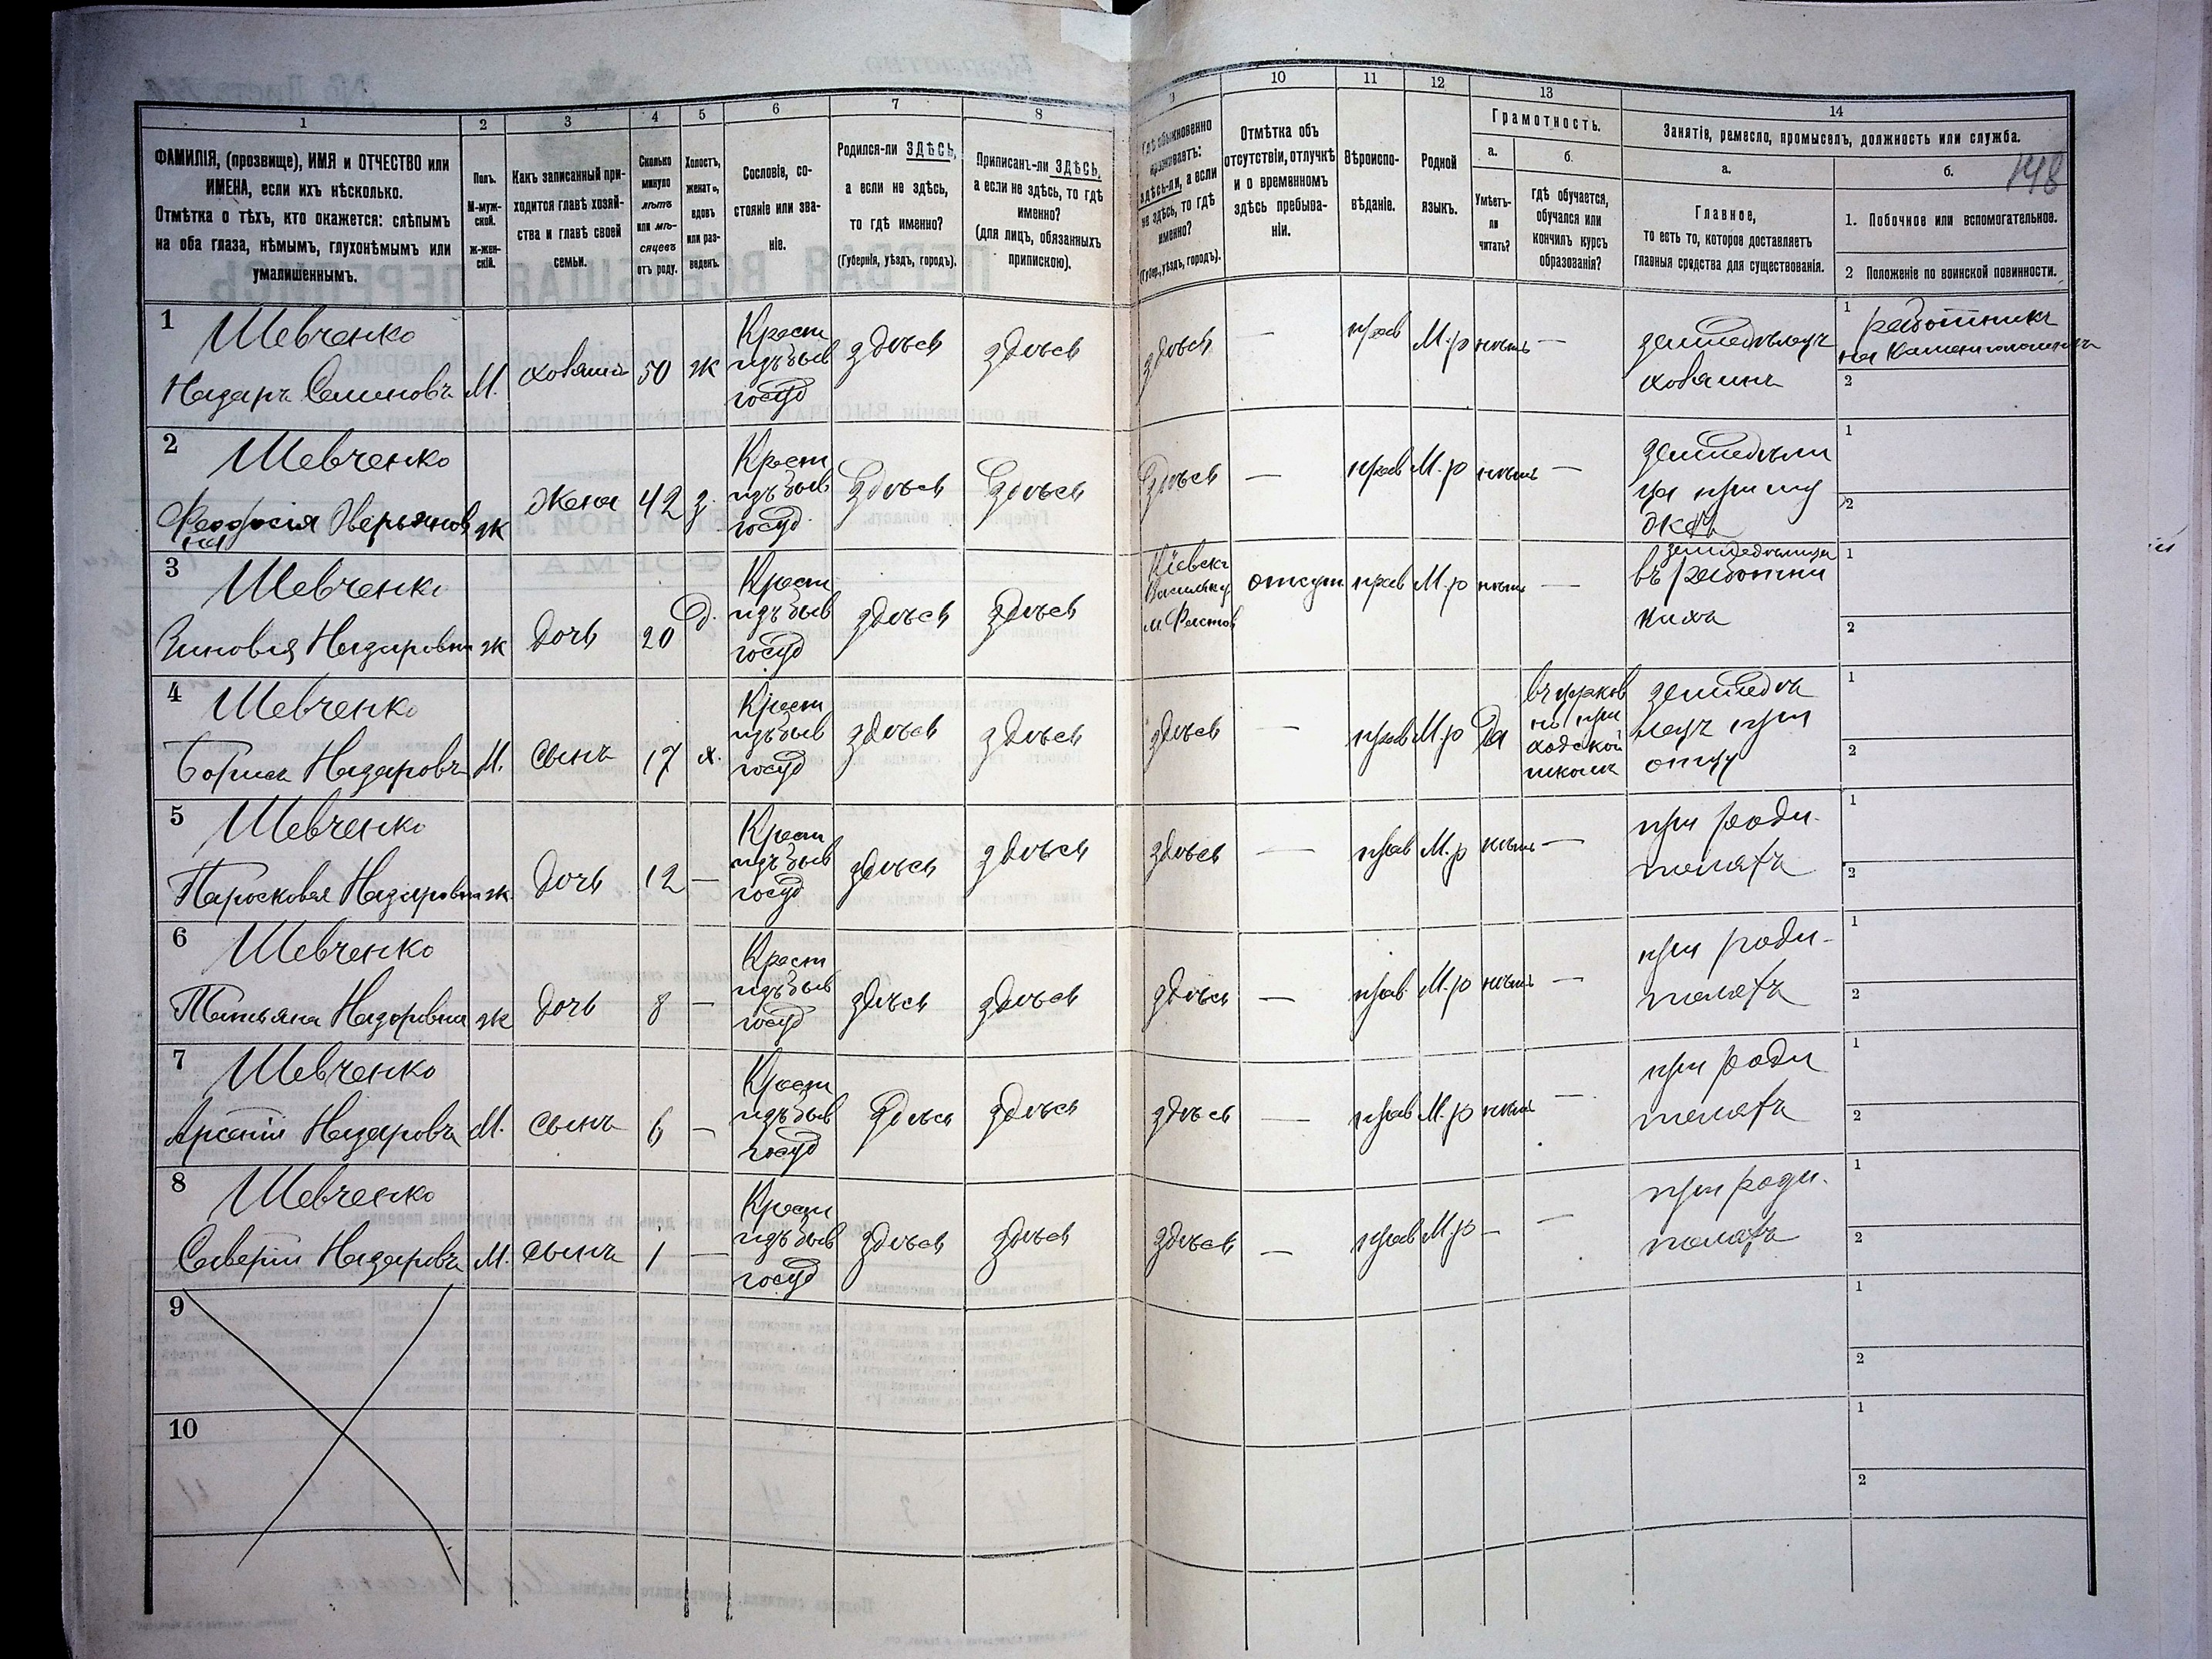 148
1
2
3
4
5
6
7
8
9
10
11
12
13
14
ФАМИЛІЯ, (прозвище), ИМЯ и ОТЧЕСТВО или
ИМЕНА, если ихъ нѣсколько.
Отмѣтка о тѣхъ, кто окажется: слѣпымъ
на оба глаза, нѣмымъ, глухонѣмымъ или
умалишеннымъ.
Полъ.
М-муж-
ской.
Ж-жен-
скій.
Какъ записанный при-
ходится главѣ хозяй-
ства и главѣ своей
семьи.
Сколько
минуло
лѣтъ
или мѣ-
сяцевъ
отъ роду.
Холостъ,
женатъ,
вдовъ
или раз-
веденъ.
Сословіе, со-
стояніе или зва-
ніе.
Родился-ли ЗДѢСЬ,
а если не здѣсь,
то гдѣ именно?
(Губернія, уѣздъ, городъ).
Приписанъ-ли ЗДѢСЬ,
а если не здѣсь, то гдѣ
именно?
(для лицъ, обязанныхъ
припискою).
Гдѣ обыкновенно
проживаетъ:
здѣсь-ли, а если
не здѣсь, то гдѣ
именно?
(Губер., уѣздъ, городъ).
Отмѣтка объ
отсутствіи, отлучкѣ
и о временномъ
здѣсь пребыва-
ніи.
Вѣроиспо-
вѣданіе.
Родной
языкъ.
Грамотность.
а.
Умѣетъ-
ли
читать?
б.
Гдѣ обучается,
обучался или
кончилъ курсъ
образованія?
Занятіе, ремесло, промыселъ, должность или служба.
а.
Главное,
то есть то, которое доставляетъ
главныя средства для существованія.
б.
1. Побочное или вспомогательное.
2 Положеніе по воинской повинности.
1
Шевченко
Назаръ Семеновъ
М.
хозяинъ
50
ж
Крест
изъ быв
госуд
здѣсь
здѣсь
здѣсь
—
прав
М.р
нѣтъ
—
земледѣлецъ
хозяинъ
1
работникъ
на
2
2
Шевченко
Феодосія
ж
жена
42
з.
Крест
изъ быв
госуд
Здѣсь
Здѣсь
Здѣсь
—
прав
М.р
нѣтъ
—
земледѣли
ца при му
жѣ
1
2
3
Шевченко
Зиновія Назаровна
ж
дочь
20
д.
Крест
изъ быв
госуд
здѣсь
здѣсь
Кіевск
Васильк
м. Фастов
отсут
прав
М.р
нѣтъ
—
земледѣлица
въ работни
цахъ
1
2
4
Шевченко
Борисъ Назаровъ
М.
сынъ
17
х.
Крест
изъ быв
госуд
здѣсь
здѣсь
здѣсь
—
прав
М.р
Да
въ церков
но при
ходской
школѣ
земледѣ
лецъ при
отцу
1
2
5
Шевченко
Парасковея Назаровна
ж.
дочь
12
—
Крест
изъ быв
госуд
здѣсь
здѣсь
здѣсь
—
прав
М.р
нѣтъ
—
при роди-
теляхъ
1
2
6
Шевченко
Татьяна Назаровна
ж
дочь
8
—
Крест
изъ быв
госуд
здѣсь
здѣсь
здѣсь
—
прав.
М.р
нѣтъ
—
при роди-
теляхъ
1
2
7
Шевченко
Арсеній Назаровъ
М.
сынъ
6
—
Крест
изъ быв
госуд
Здѣсь
здѣсь
здѣсь
—
прав
М.р
нѣтъ
—
при роди
теляхъ
1
2
8
Шевченко
Саверій Назаровъ
М.
сынъ
1
—
Крест
изъ быв
госуд
здѣсь
здѣсь
здѣсь
—
прав
М.р
—
—
при роди-
теляхъ
1
2
9
1
2
10
1
2